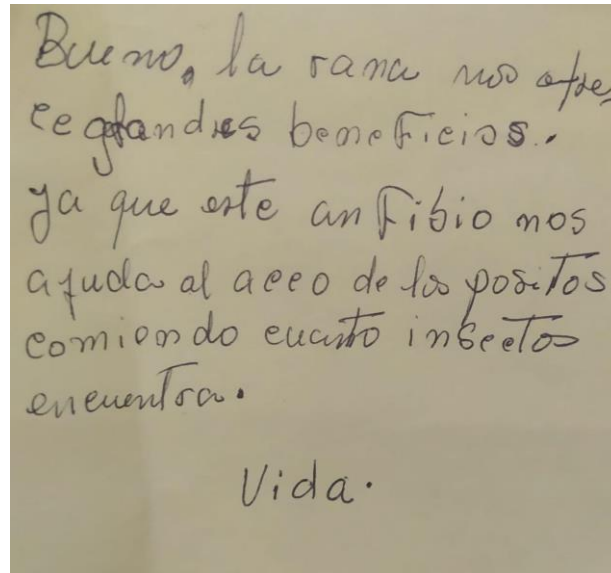 Bueno, la rana nos ofre
ce grandes beneficios.
ya que este anfibio nos
ayuda al aceo de los positos
comiendo cuanto insectos
encuentra.
Vida.